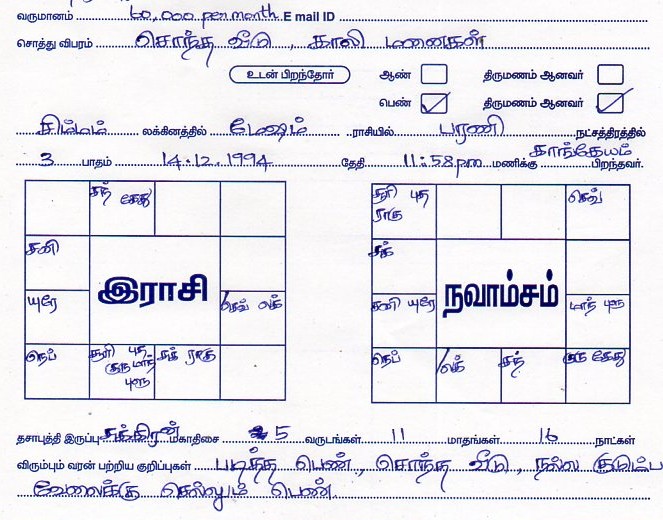 வருமானம் 60,000 per month E mail ID
சொத்து விபரம் சொந்த வீடு, காலி மனைகள்
உடன் பிறந்தோர் ஆண் திருமணம் ஆனவர்
பெண் திருமணம் ஆனவர்
சிம்மம் லக்கினத்தில் மேஷம் ராசியில் பரணி நட்சத்திரத்தில்
3 பாதம் 14.12.1994 தேதி 11:58pm மணிக்கு காங்கேயம் பிறந்தவர்.
சந் கேது
சனி
யுரே
செவ் லக்
நெப் சூரி புத குரு மாந் புளூ சுக் ராகு
இராசி
சூரி புத ராகு செவ்
சுக்
சனி யுரே மாந் புளூ
நெப் லக் சந் குரு கேது
நவாம்சம்
தசாபுத்தி இருப்பு சுக்கிரன் மகாதிசை 5 வருடங்கள் 11 மாதங்கள் 16 நாட்கள்
விரும்பும் வரன் பற்றிய குறிப்புகள் படித்த பெண், சொந்த வீடு, நல்ல குடும்ப
வேலைக்கு செல்லும் பெண்